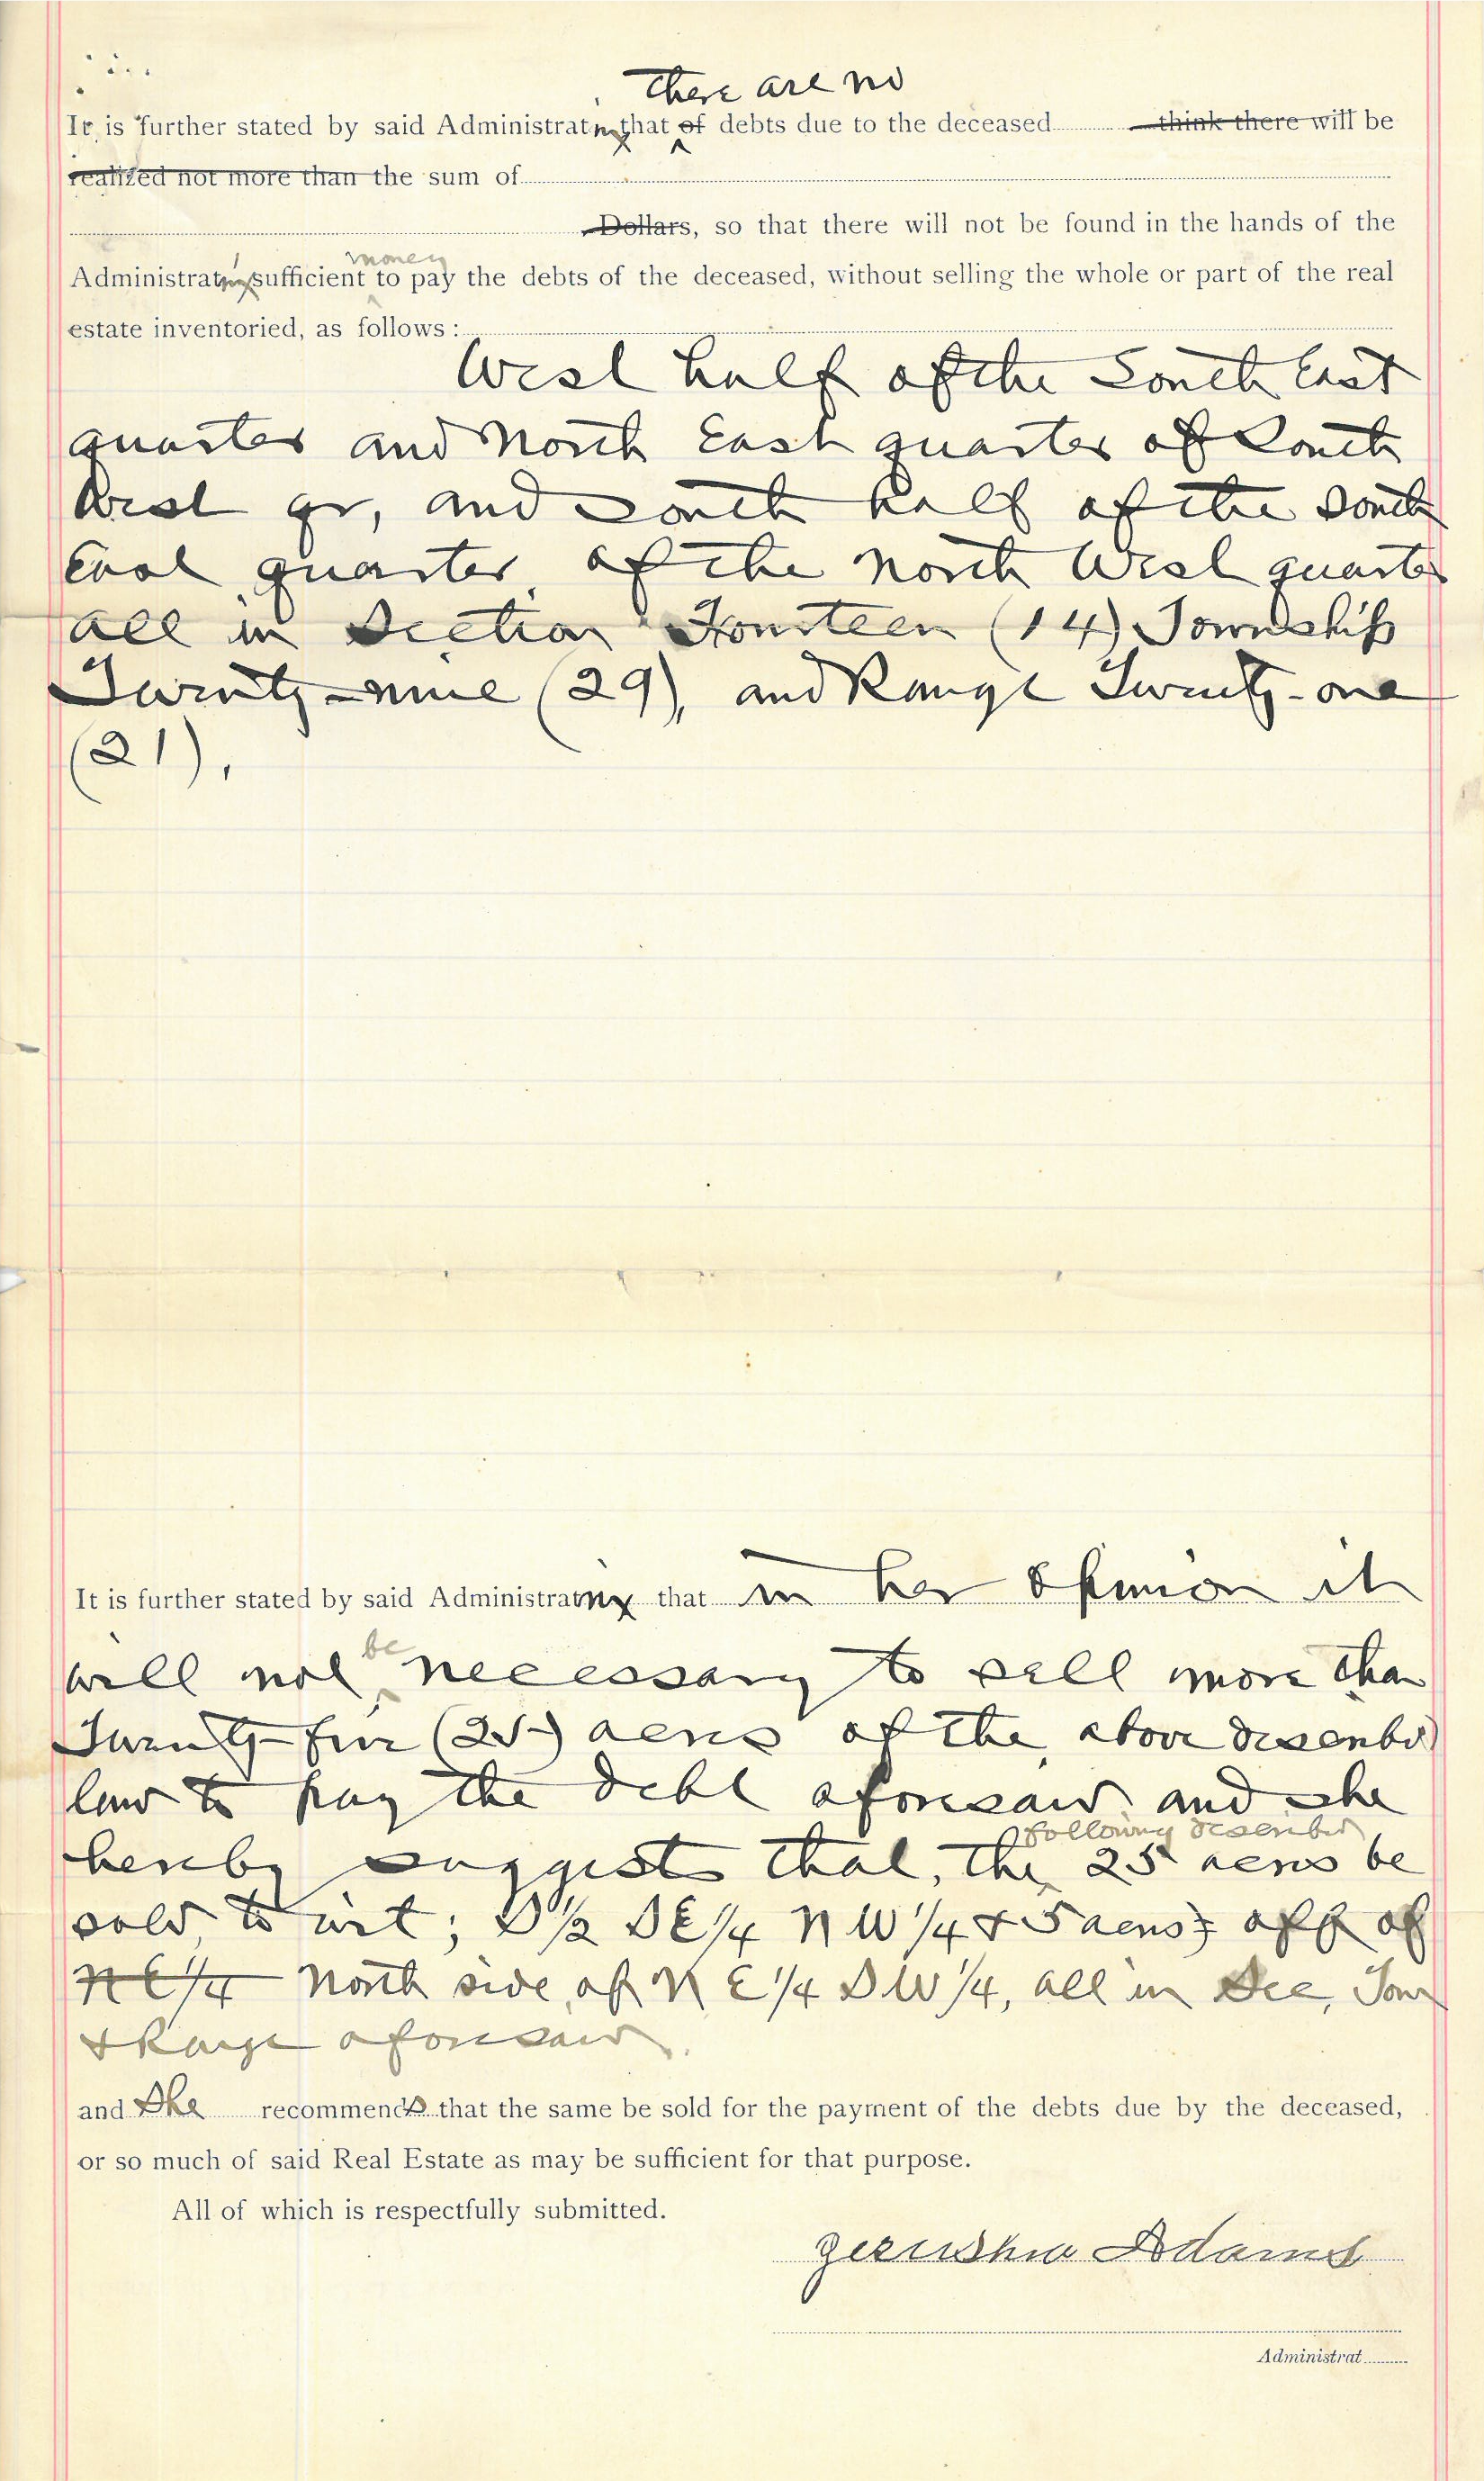 there are no
It is further stated by said Administratrix that of debts due to the deceased think there will be
realized not more than the sum of
Dollars, so that there will not be found in the hands of the
money
Administratrix sufficient to pay the debts of the deceased, without selling the whole or part of the real
estate inventoried, as follows:
West half of the South East
quarter and North East quarter of South
West qr, and South half of the South
East quarter of the North West quarter
all in Section Fourteen (14) Township
Twenty-nine (29), and Range Twenty-one
(21).
It is further stated by said Administratrix that in her opinion it
be
will not necessary to sell more than
Twenty-five (25) acres of the above described
land to pay the debt aforesaid and she
following described
hereby suggests that, the 25 acres be
sold, to wit; S 1/2 SE 1/4 NW 1/4 & 5 acres off of
NE 1/4 North side of NE 1/4 SW 1/4, all in Sec, Town
& Range aforesaid.
and She recommends that the same be sold for the payment of the debts due by the deceased,
or so much of said Real Estate as may be sufficient for that purpose.
All of which is respectfully submitted.
Zerushia Adams
Administrat